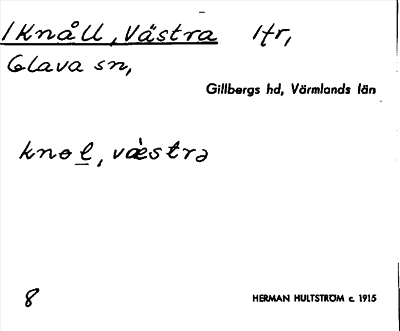 1 Knåll, Västra 1tr,
Glava sn,
Gillbergs hd, Värmlands län
knol, väs̀trə
8
HERMAN HULTSTRÖM c. 1915